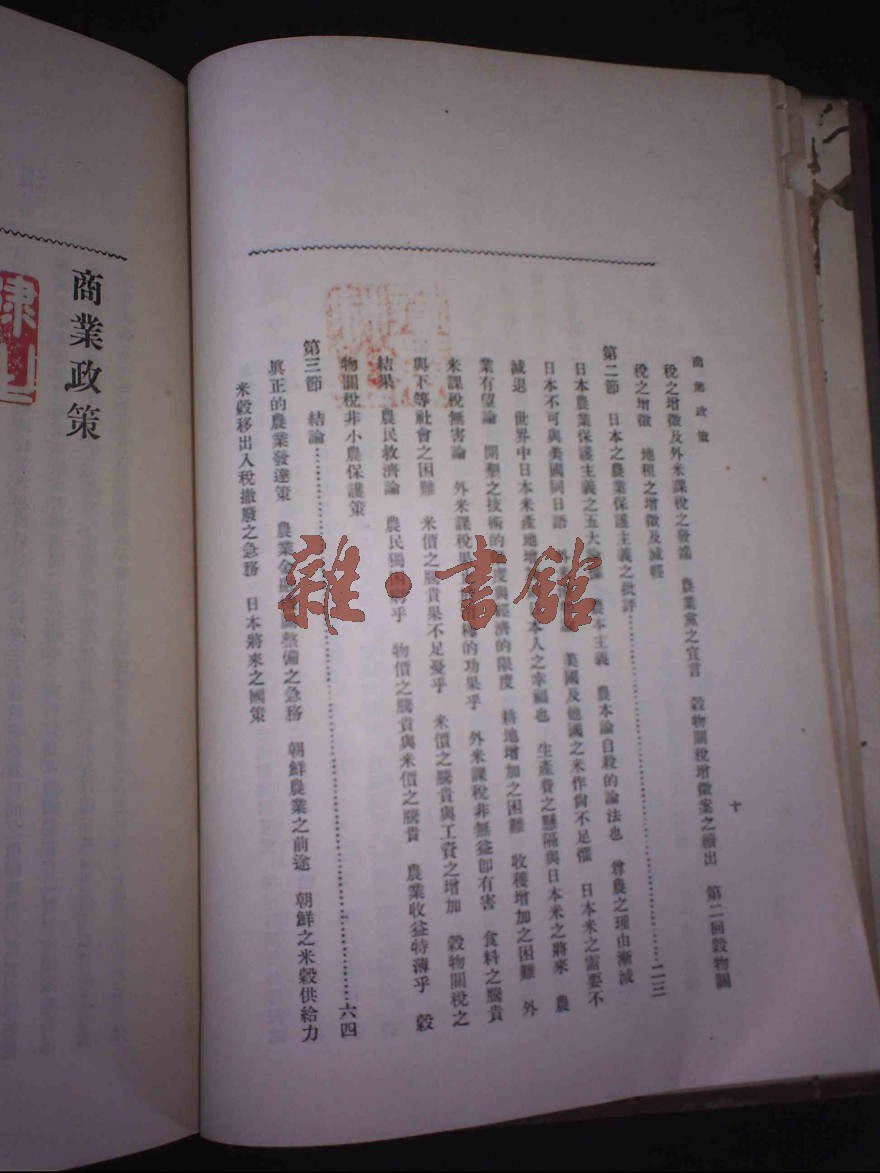 商業政策
十
稅之增徵及外米課稅之發端　農業黨之宣言　穀物關稅增徵案之續出　第二回穀物關
稅之增徵　地租之增徵及減輕
第二節　日本之農業保護主義之批評…………二三
日本農業保護主義之五大　農本主義　農本論自殺的論法也　尊農之理由漸減
日本不可與美國同日語　美國及他國之米作尙不足懼　日本米之需要不
減退　世界中日本米產地增　本人之幸福也　生產費之懸隔與日本米之將來　農
業有望論　開墾之技術的　度與經濟的限度　耕地增加之困難　收穫增加之困難　外
米課稅無害論　外米課稅果　的功果乎　外米課稅非無益卽有害　食料之騰貴
與下等社會之困難　米價之騰貴果不足憂乎　米價之騰貴與工資之增加　穀物關稅之
結果　農民救濟論　農民獨困窮乎　物價之騰貴與米價之騰貴　農業收益特薄乎　穀
物關稅非小農保護策
第三節　結論…………六四
眞正的農業發達策　農業金融　整備之急務　朝鮮農業之前途　朝鮮之米穀供給力
米穀移出入稅撤廢之急務　日本將來之國策
商業政策
雜·書館